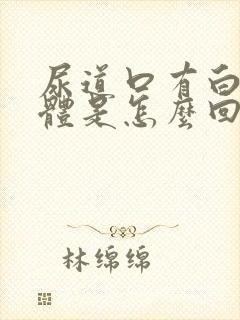 尿道口有白
體是怎麼回
林绵绵